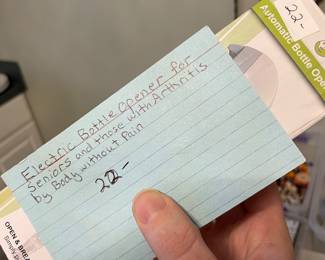 22-
Automatic Bottle Open
Electric Bottle opener for
Seniors and those with Arthritis
by Body without Pain
22-
OPEN & BREA
Simply p